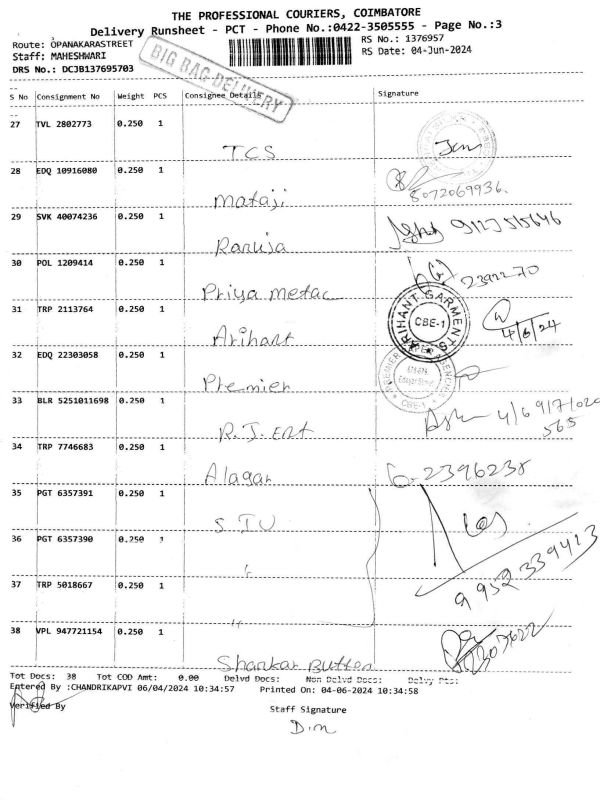 THE PROFESSIONAL COURIERS, COIMBATORE
Delivery Runsheet - PCT - Phone No.:0422-3505555 - Page No.:3
Route: OPANAKARASTREET
RS No.: 1376957
Staff: MAHESHWARI
RS Date: 04-Jun-2024
DRS No.: DCJB137695703
BIG BAG DELIVERY
S No Consignment No Weight PCS Consignee Details Signature
27 TVL 2802773 0.250 1
TCS
28 EDQ 10916080 0.250 1
Mataji
8072069936.
29 SVK 40074236 0.250 1
Ranuja
30 POL 1209414 0.250 1
Priya metac
2392270
31 TRP 2113764 0.250 1
Arihant
ARIHANT GARMENTS
CBE-1
4/6/24
32 EDQ 22303058 0.250 1
Premier
PREMIER
CBE-1
33 BLR 5251011698 0.250 1
R.J. Ent
34 TRP 7746683 0.250 1
Alagar
2396238
35 PGT 6357391 0.250 1
S I U
36 PGT 6357390 0.250 1
"
9952339413
37 TRP 5018667 0.250 1
"
38 VPL 947721154 0.250 1
Shankar Butten
2307622
Tot Docs: 38 Tot COD Amt: 0.00 Delvd Docs: Non Delvd Docs: Delvy Pts:
Entered By :CHANDRIKAPVI 06/04/2024 10:34:57 Printed On: 04-06-2024 10:34:58
Verified By
Staff Signature